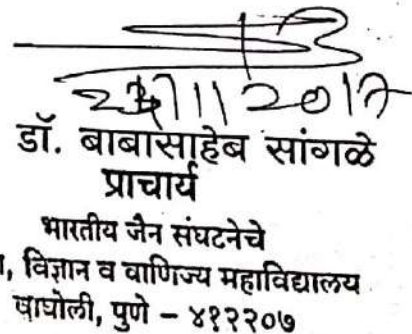 डॉ. बाबासाहेब सांगळे
प्राचार्य
भारतीय जैन संघटनेचे
, विज्ञान व वाणिज्य महाविद्यालय
वाघोली, पुणे – ४१२२०७